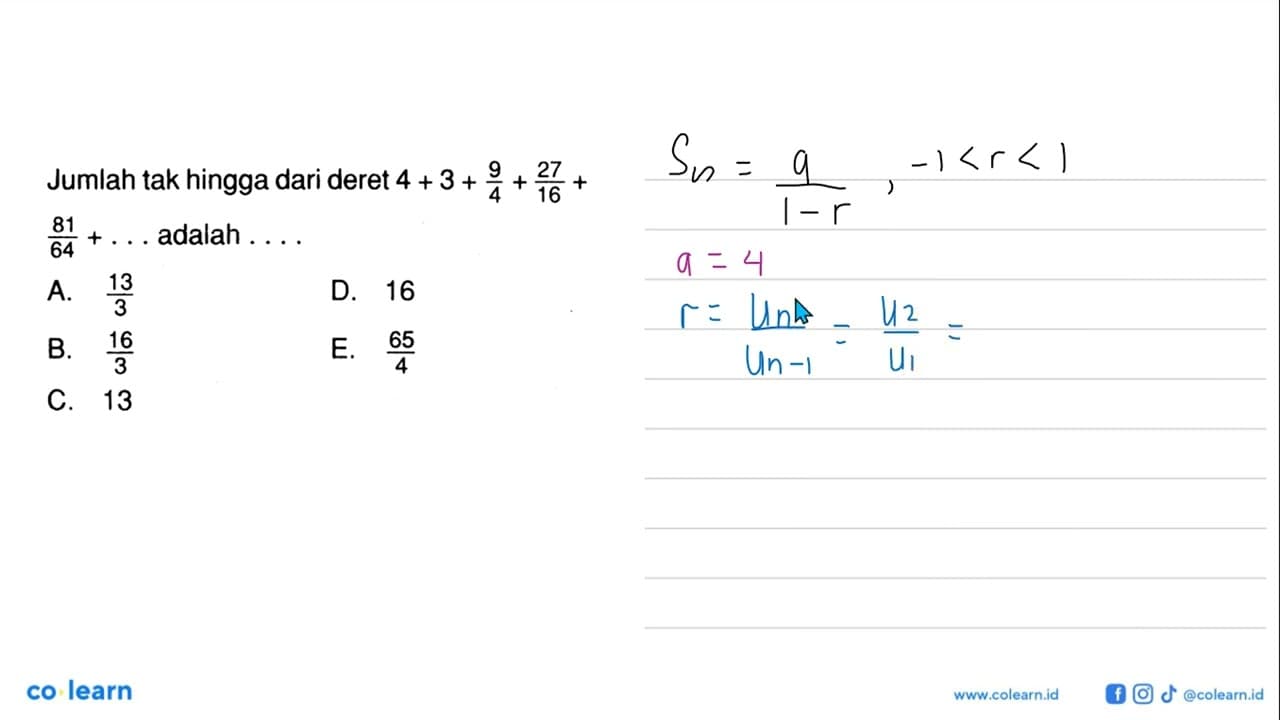 Jumlah tak hingga dari deret 4 + 3 + 9/4 + 27/16 +
81/64 + . . . adalah . . . .
A. 13/3
B. 16/3
C. 13
D. 16
E. 65/4
Sn = a/(1 - r) , -1 < r < 1
a = 4
r = Un/Un-1 = U2/U1 =
co learn
www.colearn.id
@colearn.id